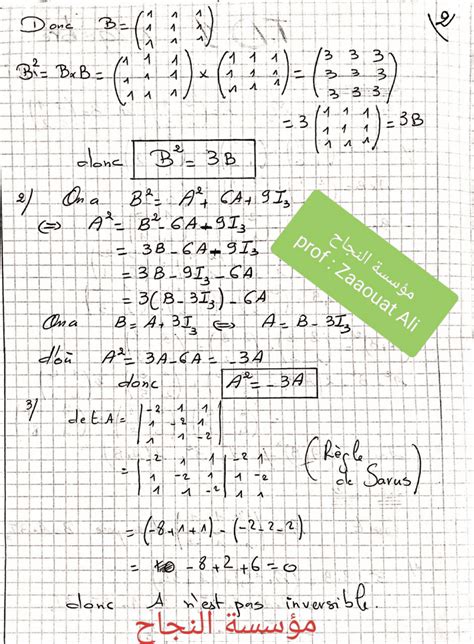 2
Donc B = (1 1 1
1 1 1
1 1 1)
B² = B × B = (1 1 1
1 1 1
1 1 1) × (1 1 1
1 1 1
1 1 1) = (3 3 3
3 3 3
3 3 3)
= 3 (1 1 1
1 1 1
1 1 1) = 3B
donc B² = 3B
2) On a B² = A² + 6A + 9I₃
⇔ A² = B² - 6A - 9I₃
= 3B - 6A - 9I₃
= 3B - 9I₃ - 6A
= 3(B - 3I₃) - 6A
On a B = A + 3I₃ ⇔ A = B - 3I₃
d'où A² = 3A - 6A = -3A
donc A² = -3A
3) det A = |-2 1 1
1 -2 1
1 1 -2|
= |-2 1 1| -2 1
1 -2 1| 1 -2
1 1 -2| 1 1
(Règle
de Sarus)
= (-8+1+1) - (-2-2-2)
= -8+2+6=0
donc A n'est pas inversible.
مؤسسة النجاح
prof : Zaaouat Ali
مؤسسة النجاح